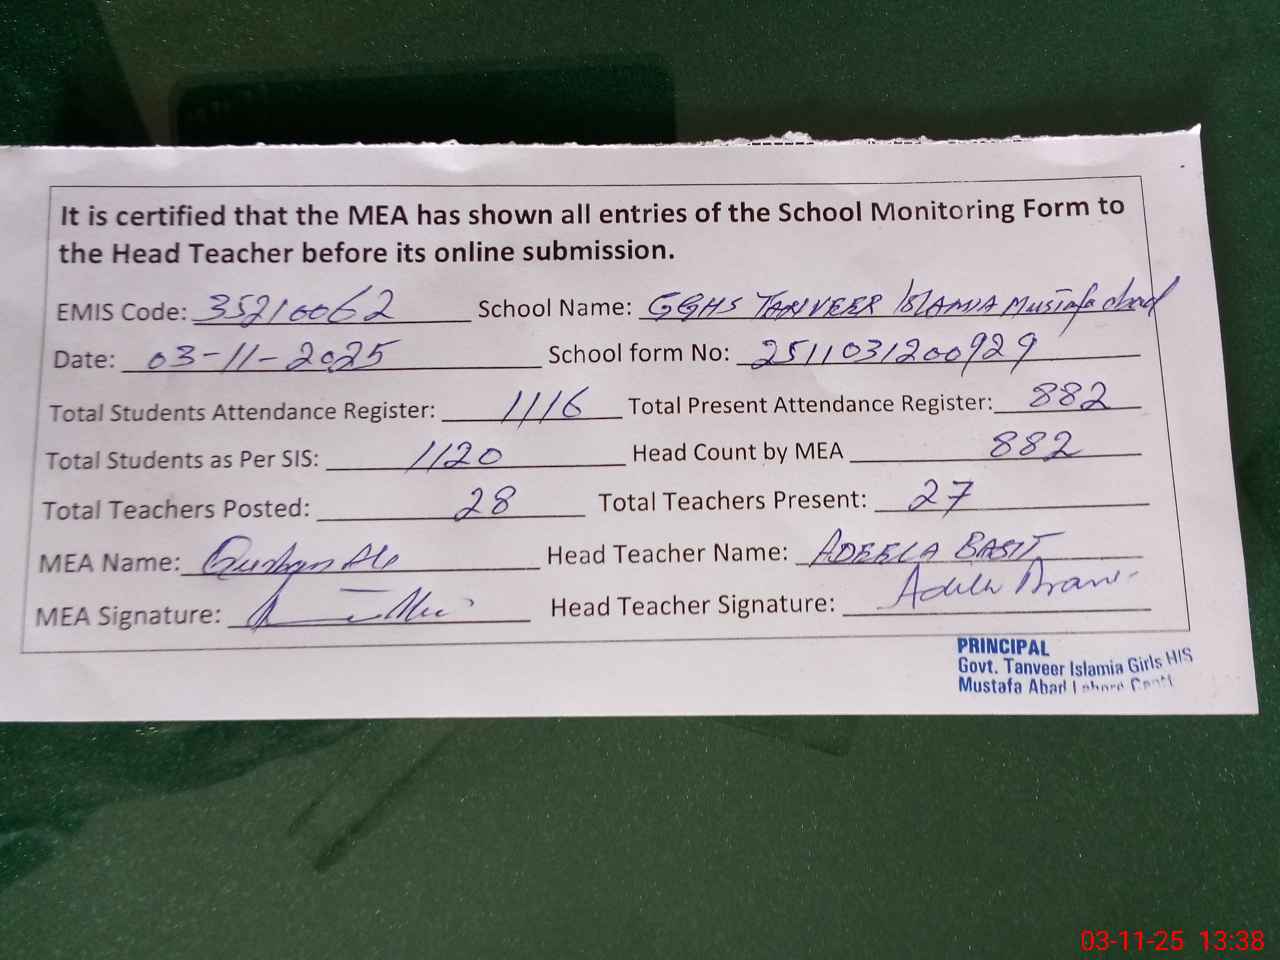 It is certified that the MEA has shown all entries of the School Monitoring Form to
the Head Teacher before its online submission.
EMIS Code: 35210062 School Name: GGHS TANVEER ISLAMIA Mustafa abad
Date: 03-11-2025 School form No: 2511031200929
Total Students Attendance Register: 1116 Total Present Attendance Register: 882
Total Students as Per SIS: 1120 Head Count by MEA 882
Total Teachers Posted: 28 Total Teachers Present: 27
MEA Name: Head Teacher Name: ADEELA BASIT
MEA Signature: Head Teacher Signature:
PRINCIPAL
Govt. Tanveer Islamia Girls H/S
Mustafa Abad Lahore Cantt
03-11-25 13:38